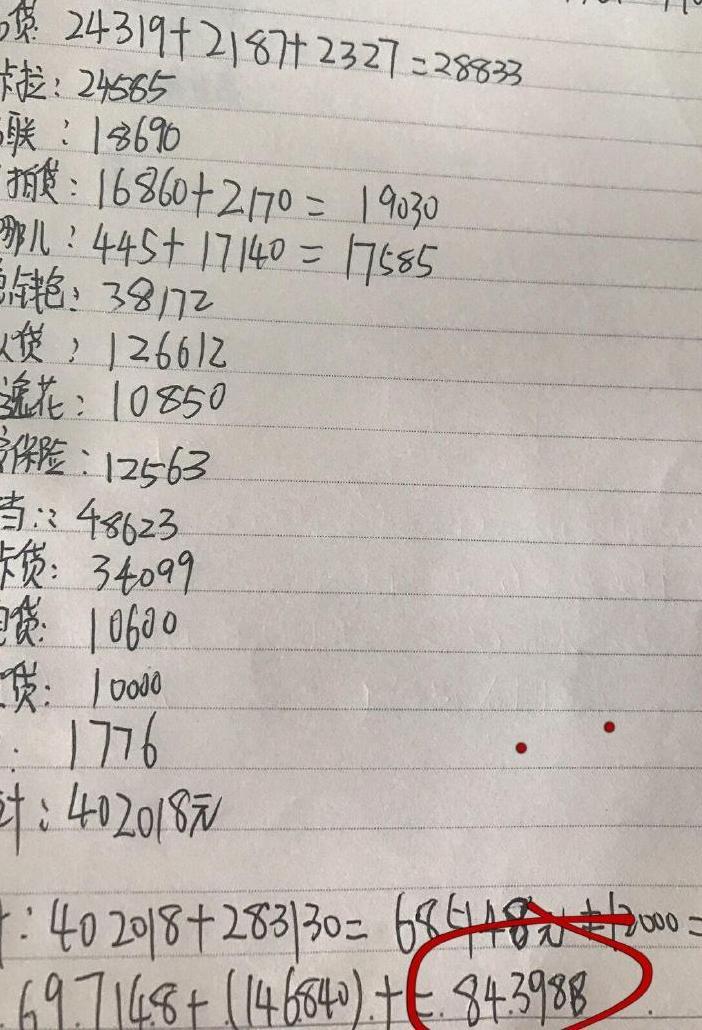 贷: 24319+2187+2327=28833
卡拉: 24565
联: 18690
拍贷: 16860+2170= 19030
哪儿: 445+17140=17585
钱包: 38172
贷: 126612
逸花: 10850
保险: 12563
当: 48623
卡贷: 34099
贷: 10600
贷: 10000
: 1776
计: 402018元
: 402018+283130= 685148元+12000=
697148+(146840)+=843988